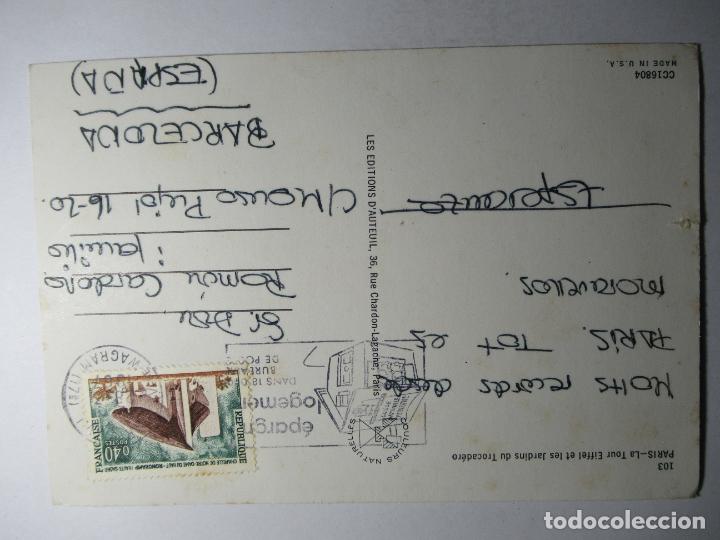 103
PARIS—La Tour Eiffel et les Jardins du Trocadéro
Molts records desde
PARIS. TOT es
maravellos.
Esperanza
CC16804
MADE IN U.S.A.
LES EDITIONS D'AUTEUIL, 36, Rue Chardon-Lagache, Paris
COULEURS NATURELLES
épargne
logement
DANS 18.0
BUREAUX
DE POS
WAGRAM (17e)
REPUBLIQUE
FRANCAISE
0,40
POSTES
CHAPELLE DE NOTRE-DAME DU HAUT - RONCHAMP (HAUTE-SAONE)
Sr. Don
Román Cardona
i familia
C/ Pujol 16-20.
BARCELONA
(ESPAÑA)
todocoleccion